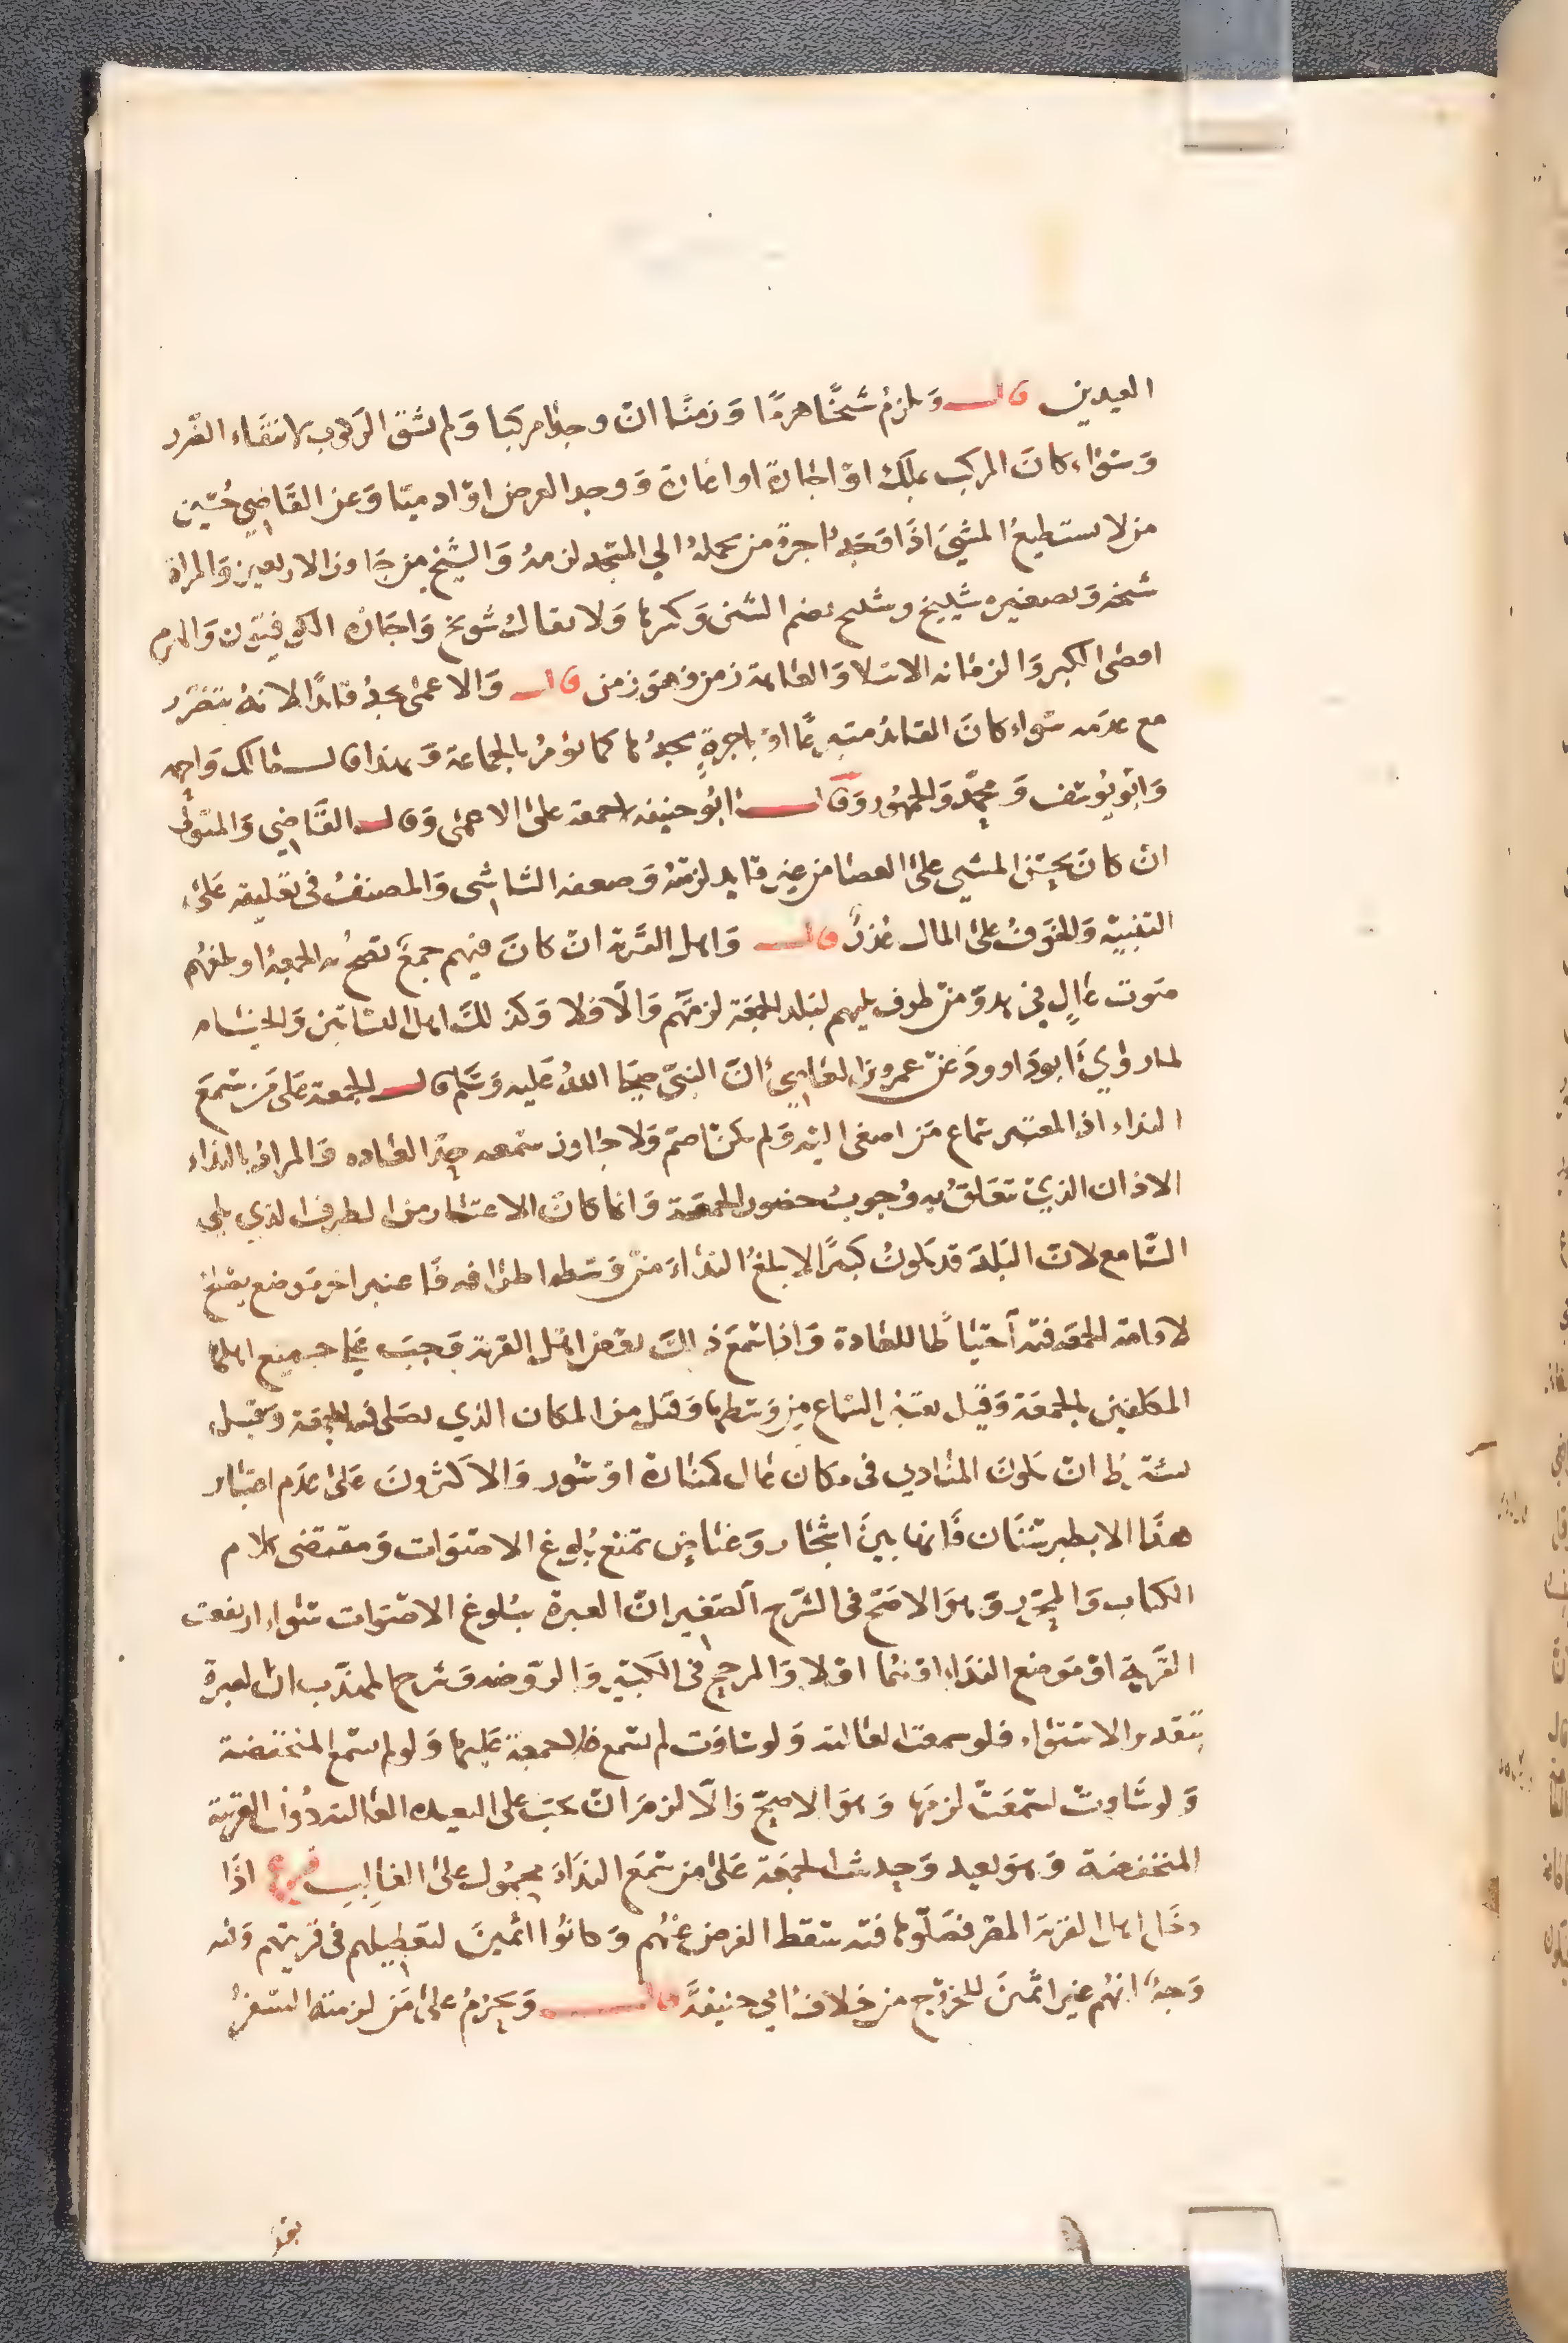 العيدين قال ويلزم شيخا هرما وزمنا ان وجدا مركبا ولم يشق الركوب لانتفاء الضرر
وسواء كان المركب بملك او اجارة او اعارة ووجد العرض او ادميا وعن القاضي حسين
من لا يستطيع المشي اذا وجد اجرة من يحمله الي المسجد لزمه والشيخ من جاوز الاربعين والمراة
شيخه وتصغيره شييخ وشييخ بضم الشين وكسرها ولا يقال شويخ واجازه الكوفيون والهرم
اقصى الكبر والزمانه الابتلا والعاهة زمن فهو زمن قال والاعمى يجد قائدا لانه يتضرر
مع عدمه سواء كان القائد متبرعا او باجرة يجدها كما يؤمر بالجماعة وبهذا قال مالك واحمد
وابو يوسف ومحمد والجمهور وقال ابو حنيفه لا جمعة على الاعمى وقال القاضي والمتولي
ان كان يحسن المشي على العصا من غير قايد لزمته وضعفه الشاشي والمصنف في تعليقه على
التنبيه والخوف على المال عذر قال واهل القرية ان كان فيهم جمع تصح به الجمعة او بلغهم
صوت عال في هدو من طرف يليهم لبلد الجمعة لزمتهم والا فلا وكذلك اهل البساتين والخيام
لما روي ابو داوود عن عمرو بن العاصي ان النبي صلى الله عليه وسلم قال الجمعة على من سمع
النداء اذ المعتبر سماع من اصغى اليه ولم يكن اصم ولا جاوز سمعه حد العاده والمراد بالنداء
الاذان الذي تتعلق به وجوب حضور الجمعة وانما كان الاعتبار من الطرف الذي يلي
السامع لان البلد قد يكون كبيرا لا يبلغ النداء من وسطه اطرافه فاعتبر اخر موضع يصلح
لاقامة الجمعه فيه احتياطا للعادة واذا سمع ذلك بعض اهل القرية وجب على جميع اهلها
المكلفين بالجمعة وقيل يعتبر السماع من وسطها وقيل من المكان الذي يصلى فيه الجمعة وقيل
يشترط ان يكون المنادي في مكان عال كمنارة او سور والاكثرون على عدم اعتبار
هذا الا بطبرستان فانها بين اشجار وغياض تمنع بلوغ الاصوات ومقتضى كلام
الكتاب والمحرر وهو الاصح في الشرح الصغير ان العبرة ببلوغ الاصوات سواء ارتفعت
القرية او موضع النداء او نحوهما او لا والمرجح في الكبير والروضه وشرح المهذب ان العبرة
بتقدير الاستواء فلو سمعت العاليه ولو ساوت لم تسمع فلا جمعة عليها ولو لم تسمع المنخفضة
ولو ساوت لسمعت لزمها وهو الاصح والا لزم ان تجب على البعيده العاليه دون القرية
المنخفضة وهو بعيد وحديث الجمعة على من سمع النداء محمول على الغالب فرع اذا
دخل اهل القرية المصر فصلوها فيه سقط الفرض عنهم وكانوا اثمين لتعطيلهم في قريتهم وفيه
وجه انهم غير اثمين للخروج من خلاف ابي حنيفة قال ويحرم على من لزمته السفر
بعد